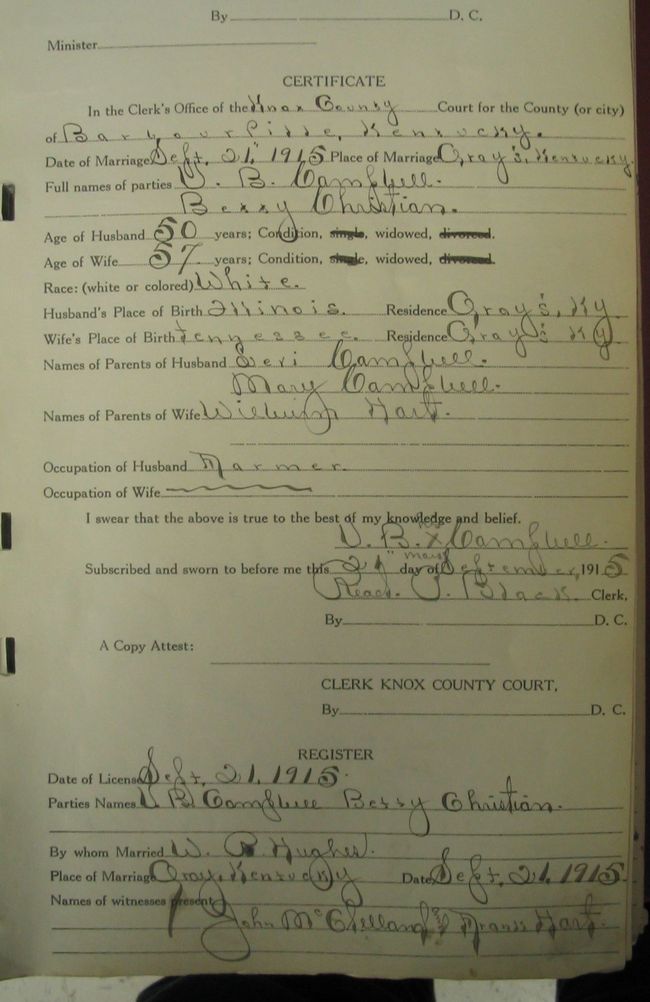 By D. C.
Minister
CERTIFICATE
In the Clerk's Office of the Knox County Court for the County (or city)
of Barbourville, Kentucky.
Date of Marriage Sept, 21" 1915 Place of Marriage Gray's, Kentucky.
Full names of parties B. Campbell.
Bessy Christian.
Age of Husband 50 years; Condition, single, widowed, divorced.
Age of Wife 57 years; Condition, single, widowed, divorced.
Race: (white or colored) White.
Husband's Place of Birth Illinois. Residence Gray's, Ky
Wife's Place of Birth Tennessee. Residence Gray's Ky
Names of Parents of Husband Levi Campbell.
Mary Campbell.
Names of Parents of Wife William Hart.
Occupation of Husband Farmer.
Occupation of Wife
I swear that the above is true to the best of my knowledge and belief.
B. his x Campbell.
mark
Subscribed and sworn to before me this 21" day of September, 1915
Read. P. Black. Clerk,
By D. C.
A Copy Attest:
CLERK KNOX COUNTY COURT,
By D. C.
REGISTER
Date of License Sept, 21, 1915.
Parties Names B. Campbell Bessy Christian.
By whom Married W. R. Hughes.
Place of Marriage Gray, Kentucky Date Sept, 21, 1915
Names of witnesses present
John McClelland & Hart.